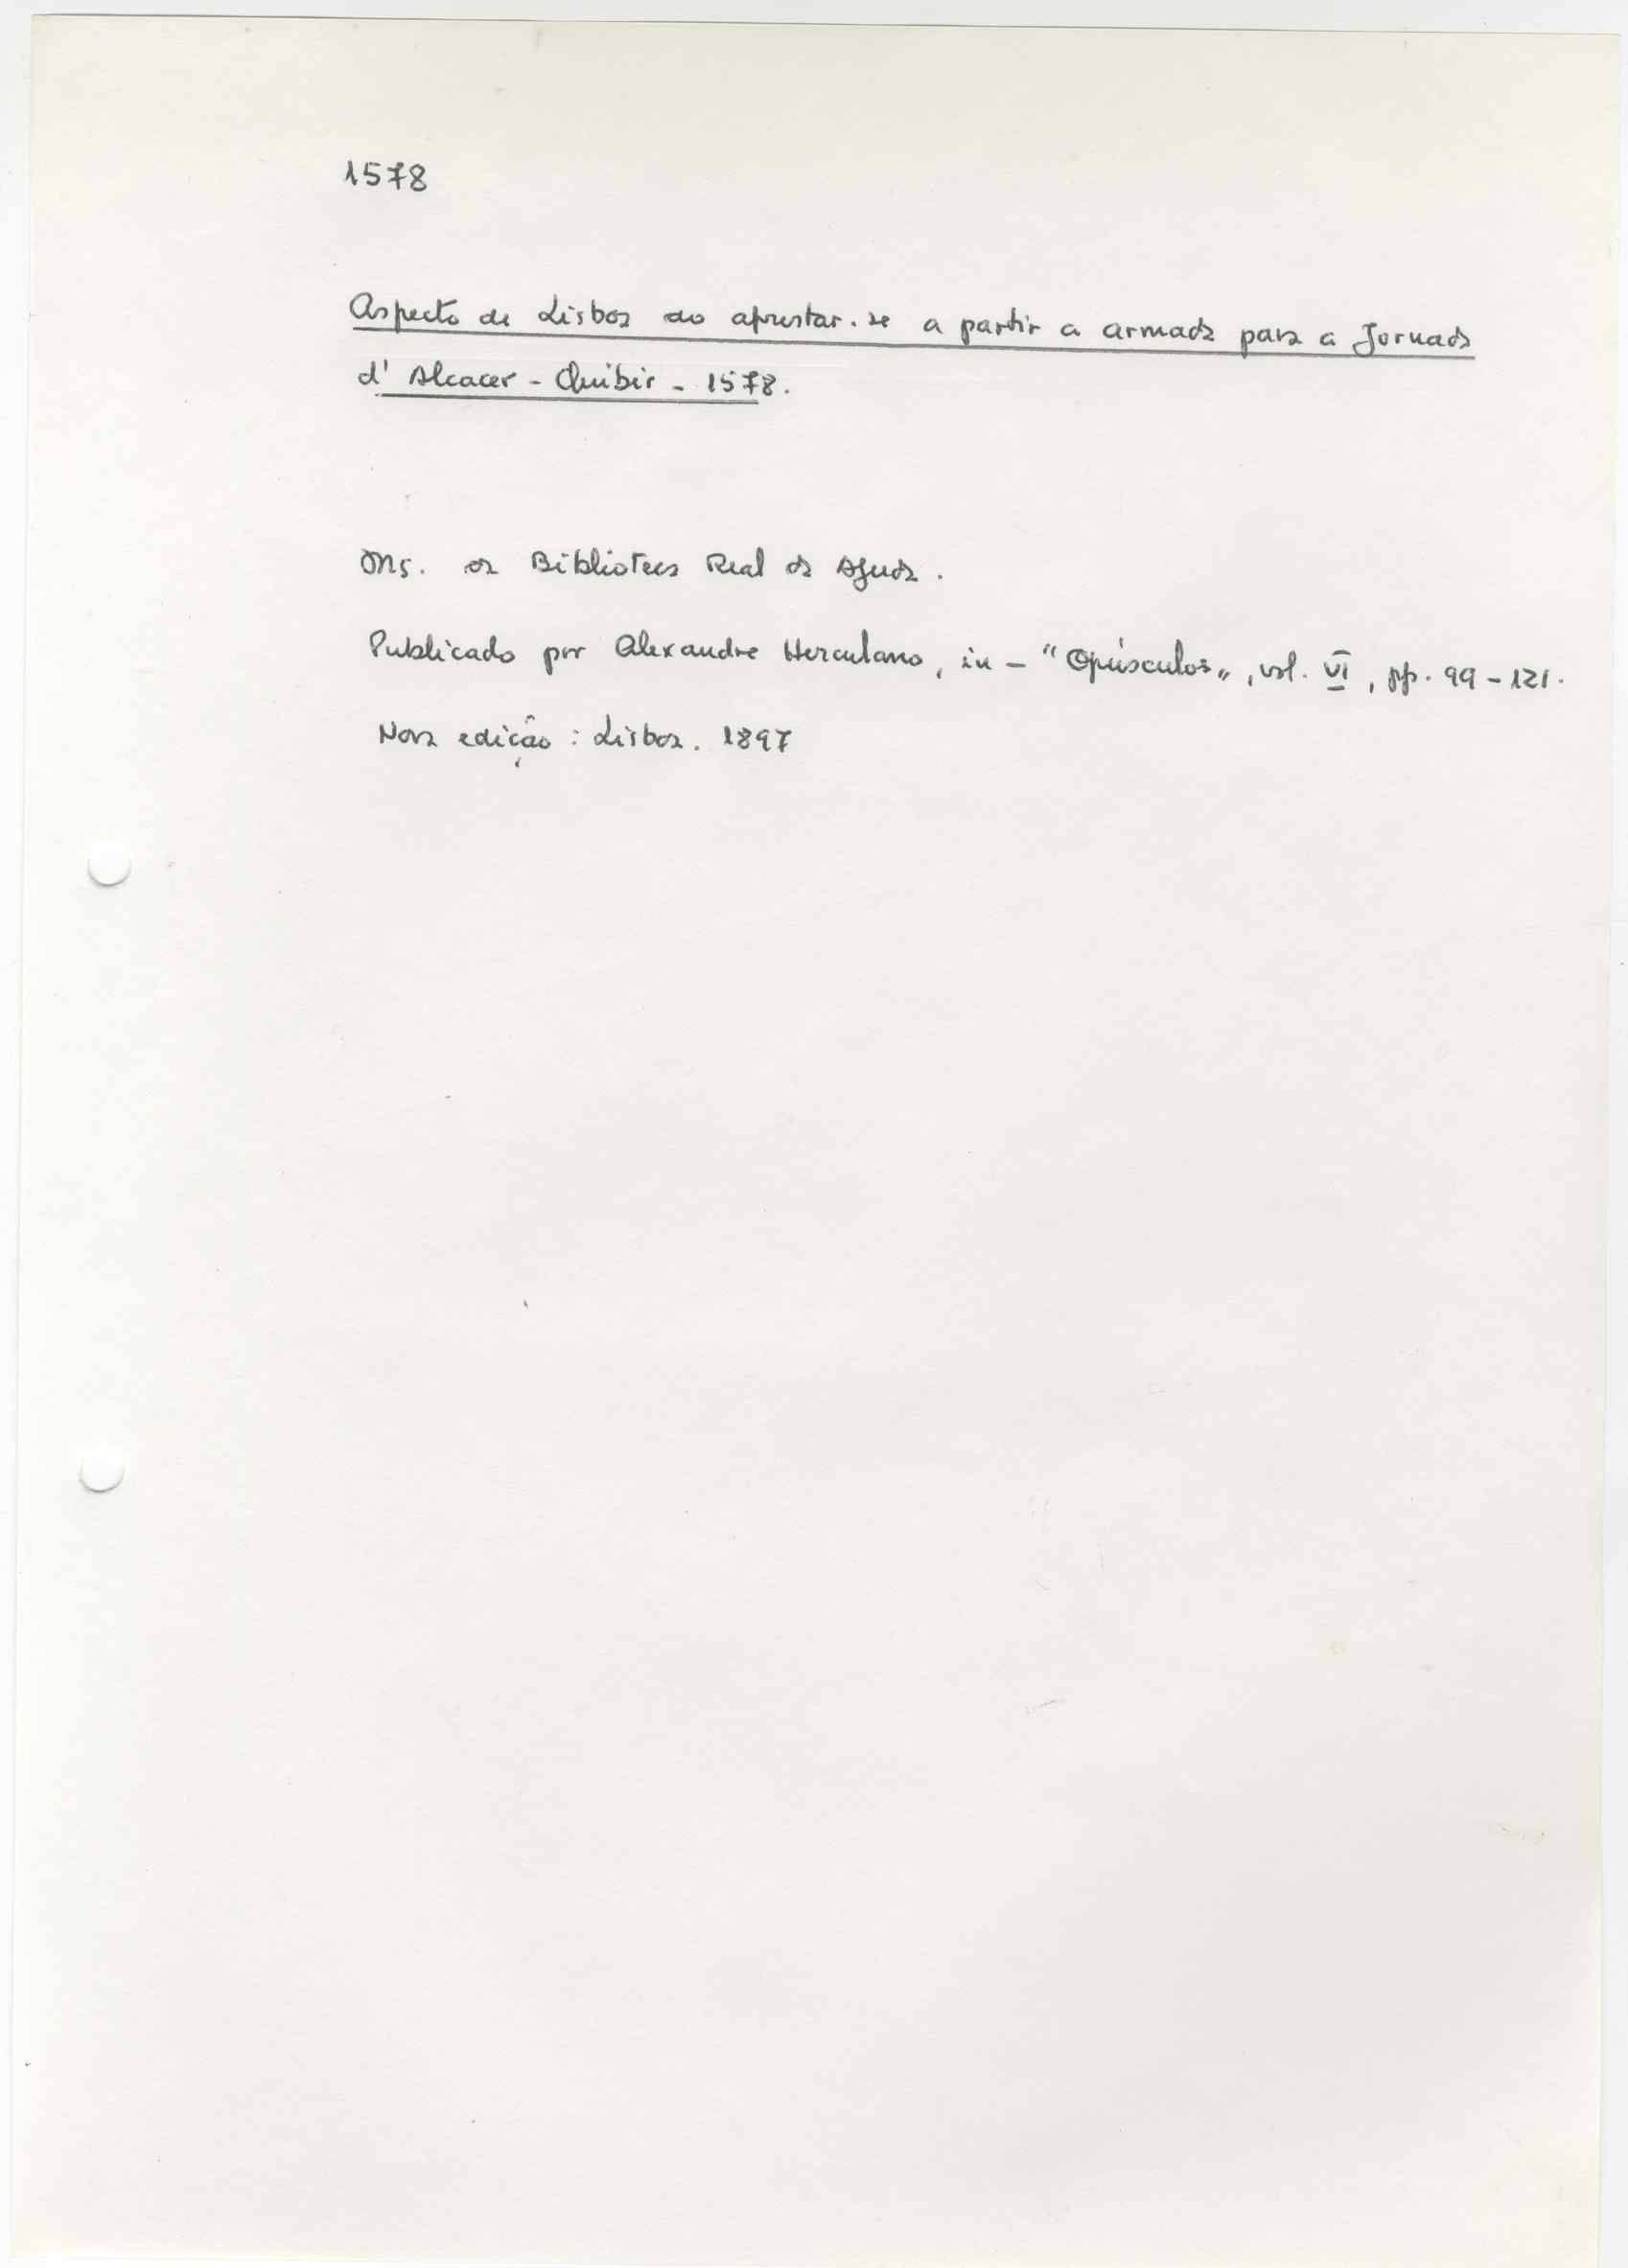 1578
Aspecto de Lisboa ao aprestar-se a partir a armada para a Jornada
d' Alcacer - Quibir - 1578.
Ms. da Biblioteca Real da Ajuda.
Publicado por Alexandre Herculano, in - "Opúsculos", vol. VI, pp. 99-121.
Nova edição: Lisboa. 1897